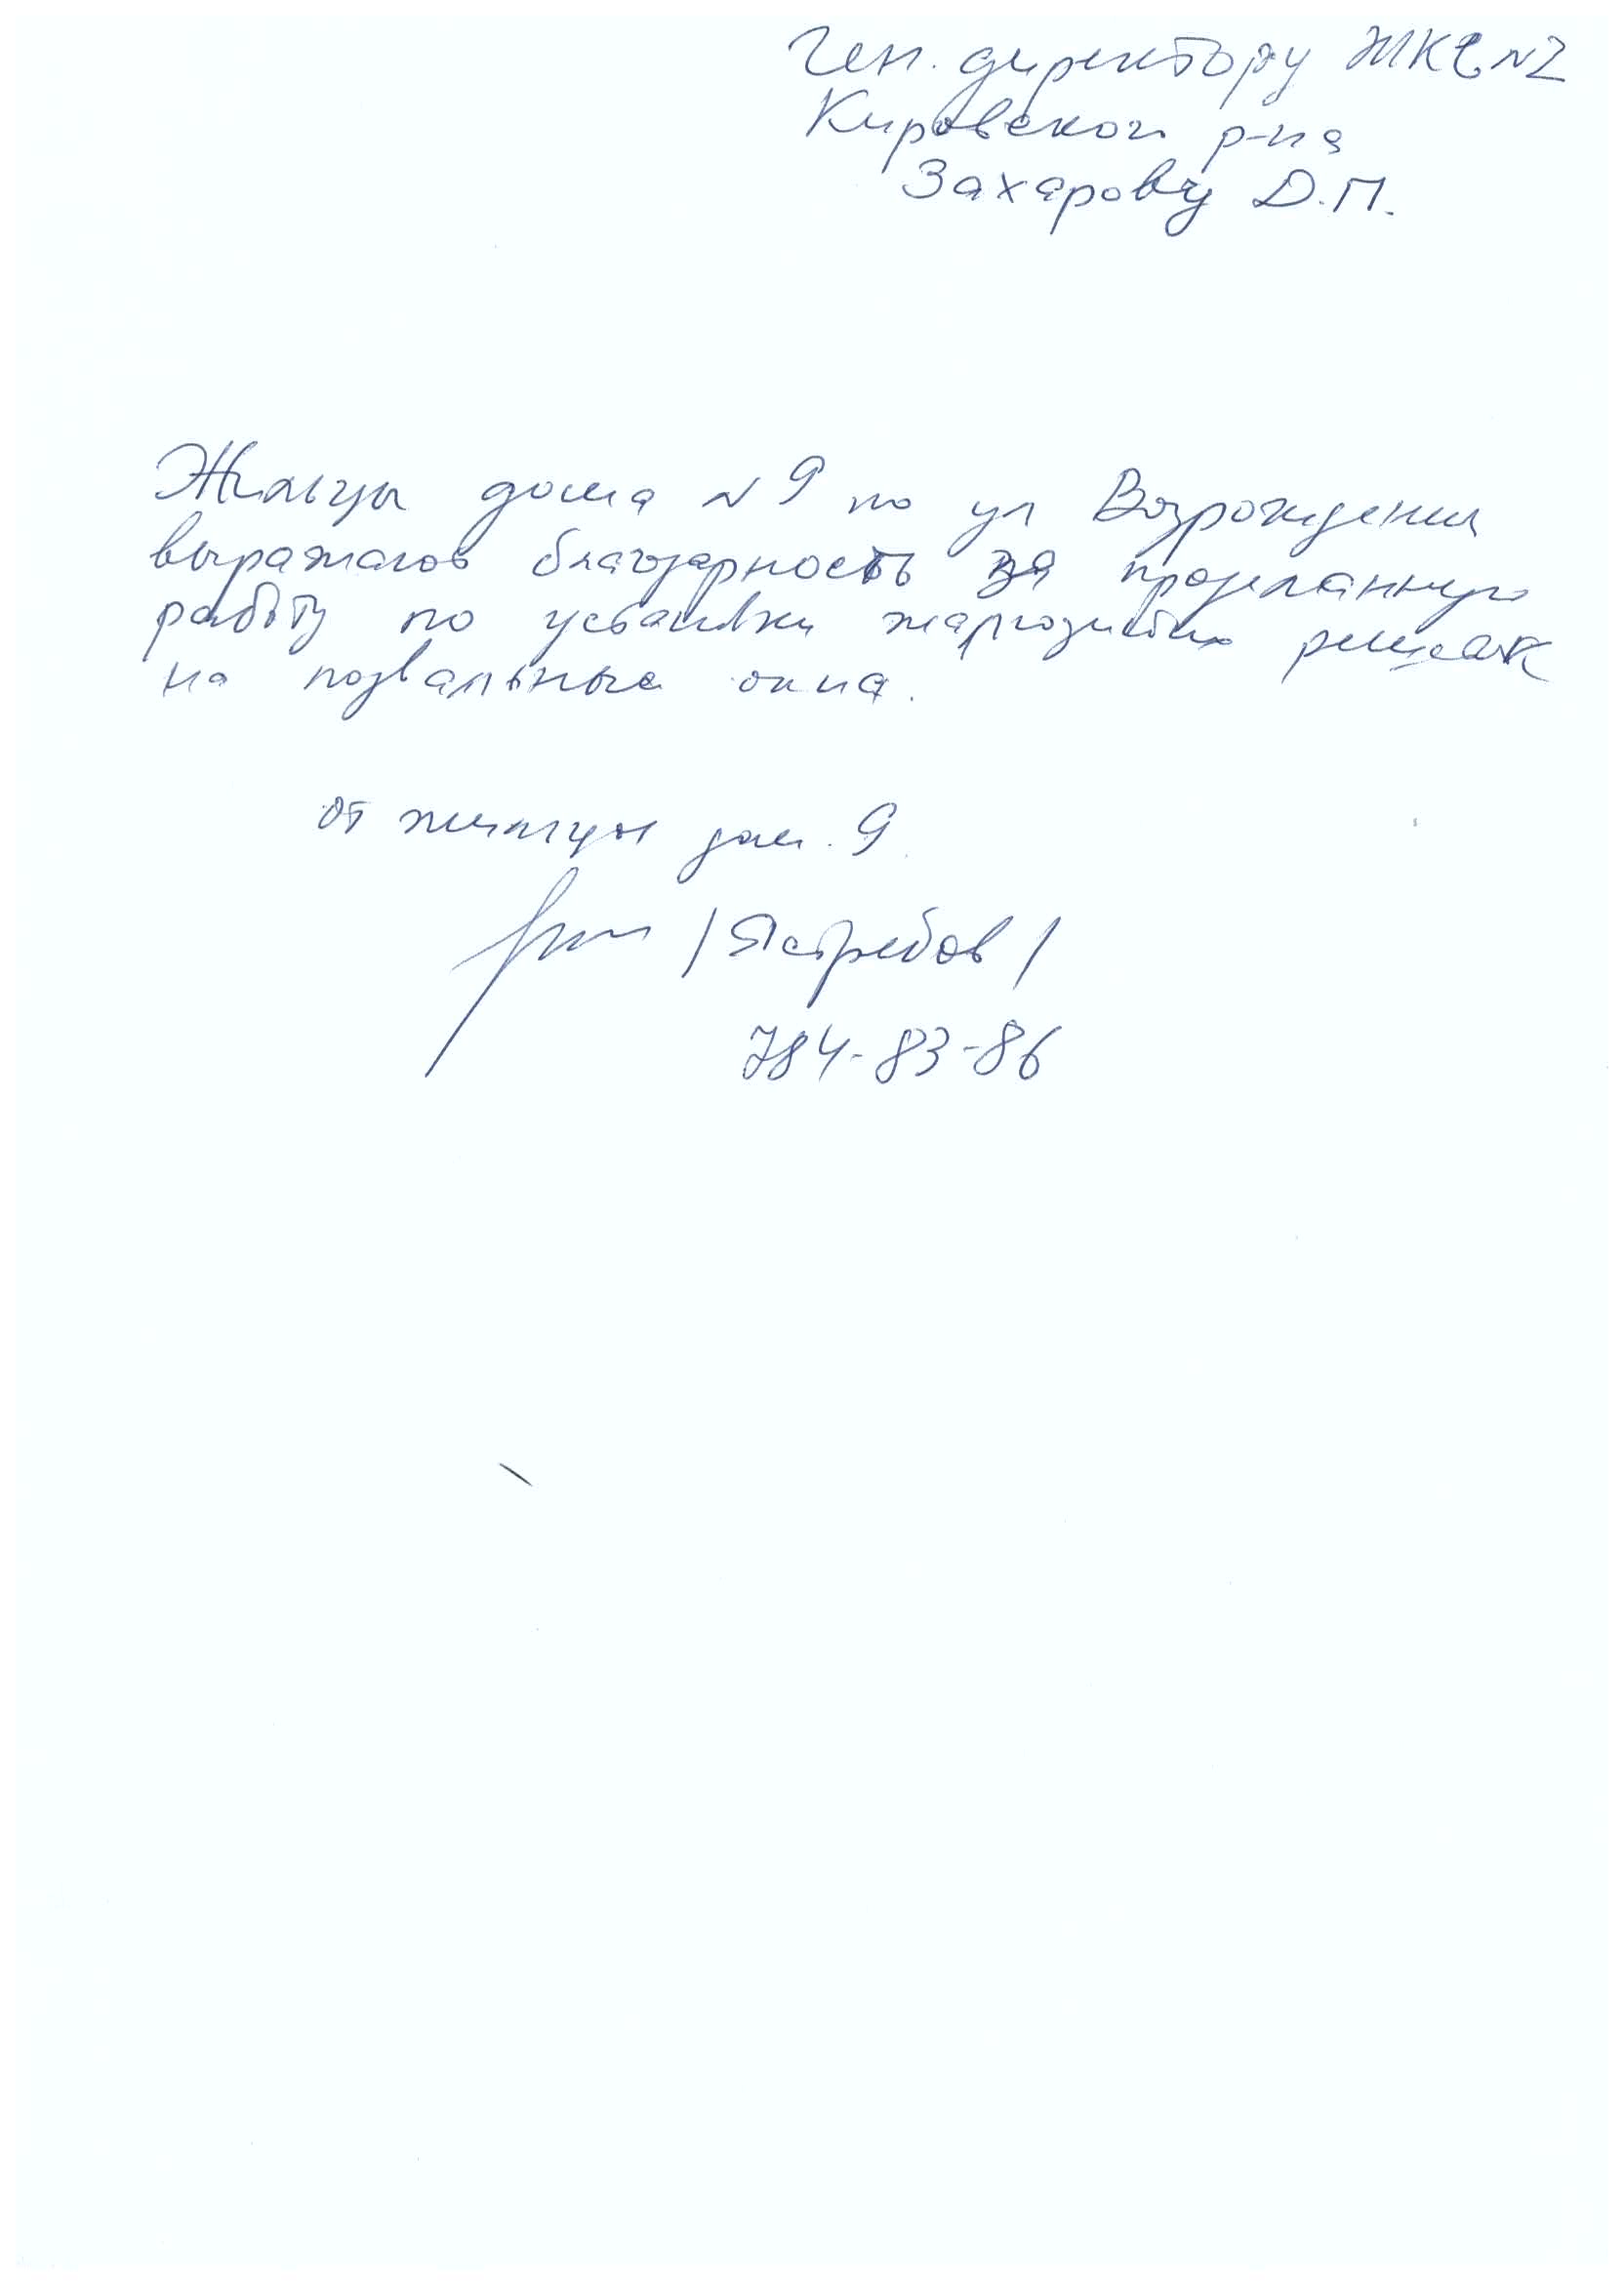 Ген. директору ЖКС №2
Кировского р-на
Захарову Д.П.
Жильцы дома № 9 по ул Возрождения
выражают благодарность за проделанную
работу по установки жалюзийных решеток
на подвальные окна.
от жильцов дом. 9.
/Ястребов/
784-83-86